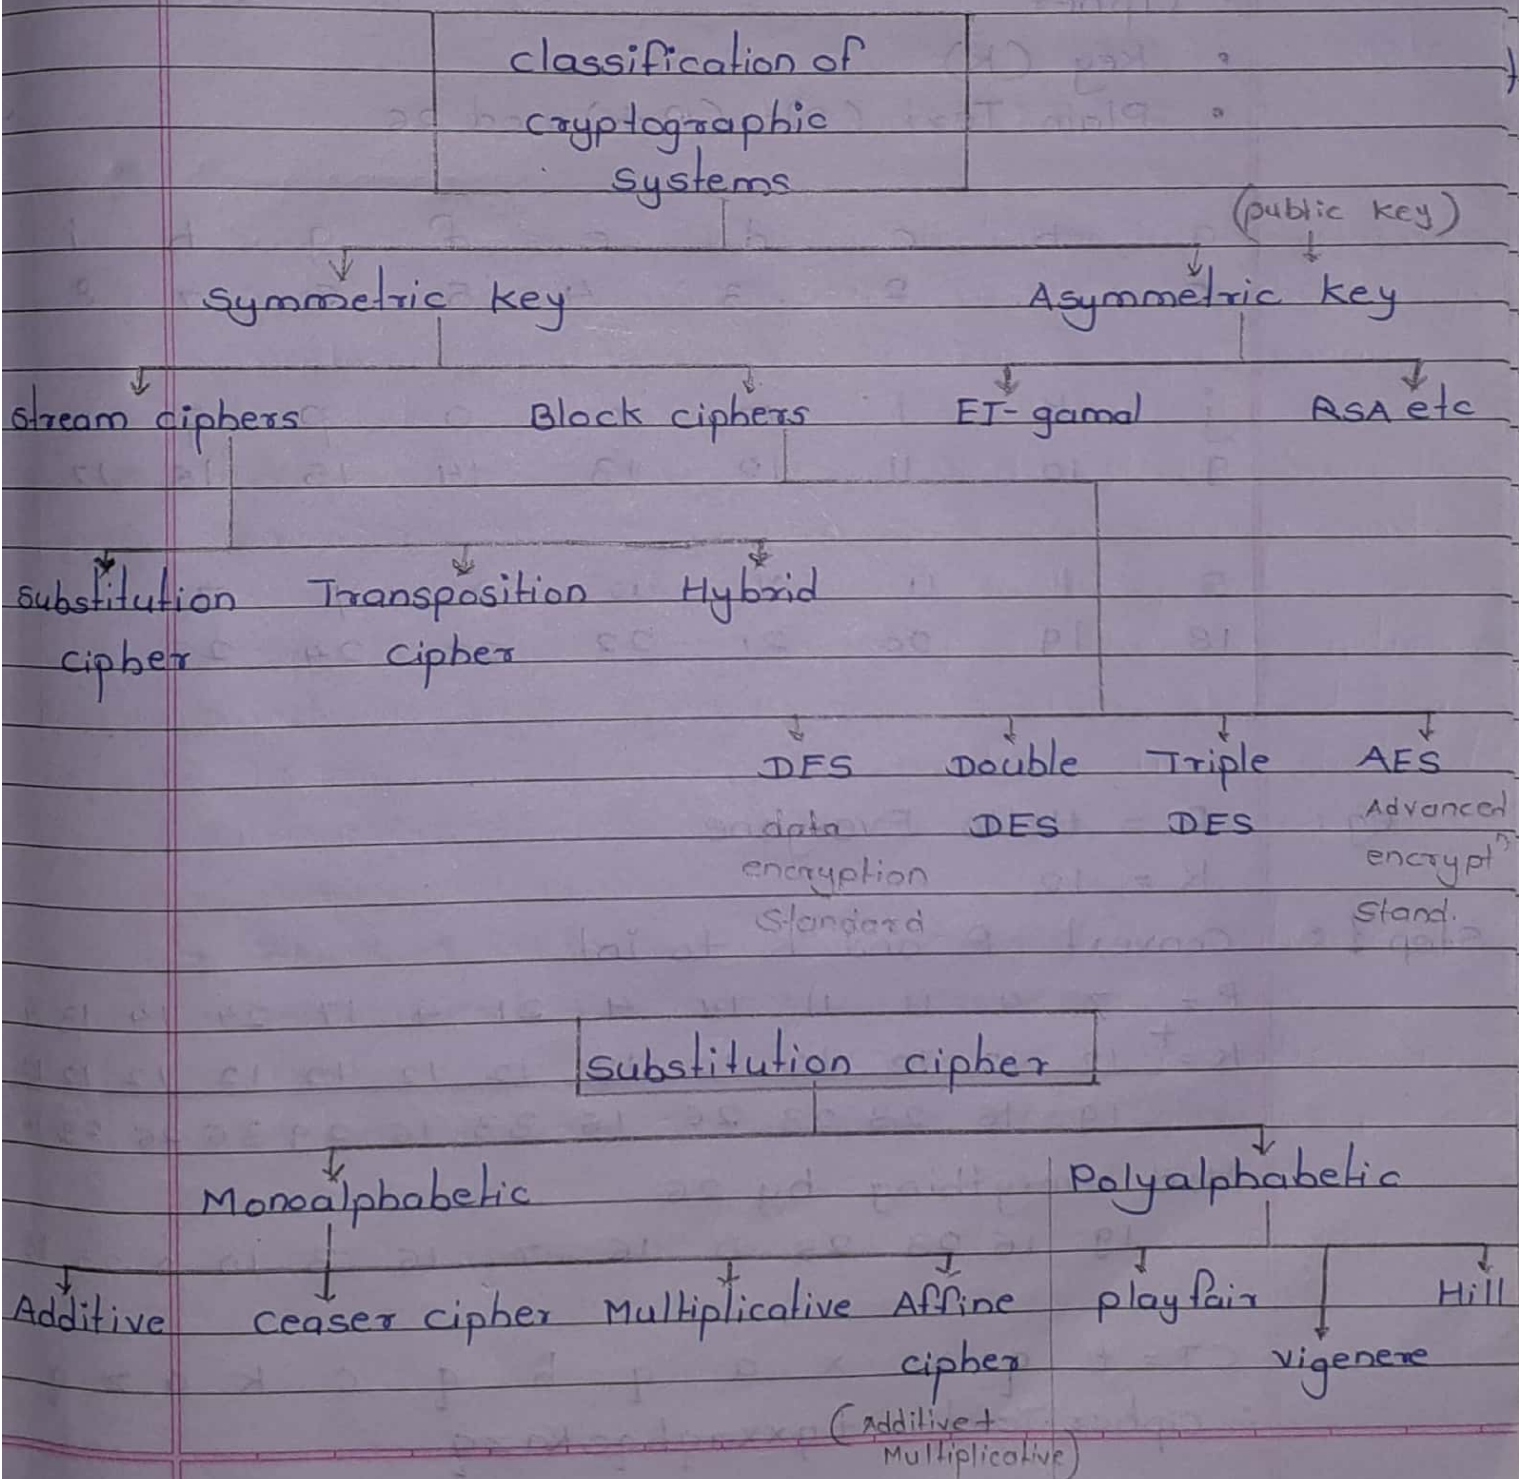 classification of
cryptographic
systems
(public key)
Symmetric key
Asymmetric key
Stream ciphers
Block ciphers
EI-gamal
RSA etc
Substitution
cipher
Transposition
cipher
Hybrid
DES
data
encryption
Standard
Double
DES
Triple
DES
AES
Advanced
encryptⁿ
Stand.
Substitution cipher
Monoalphabetic
Polyalphabetic
Additive
ceaser cipher
Multiplicative
Affine
cipher
(additive +
Multiplicative)
playfair
vigenere
Hill